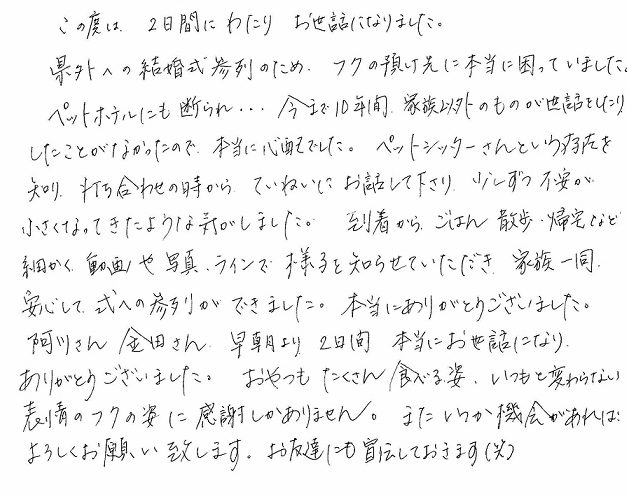 この度は、2日間にわたり お世話になりました。
県外への結婚式参列のため、フクの預け先に本当に困っていました。
ペットホテルにも断られ・・・今まで10年間、家族以外のものが世話をしたり
したことがなかったので、本当に心配でした。ペットシッターさんという存在を
知り、打ち合わせの時から、ていねいにお話して下さり、少しずつ不安が
小さくなってきたような気がしました。 到着から、ごはん 散歩・帰宅など
細かく、動画や写真、ラインで様子を知らせていただき、家族一同、
安心して、式への参列ができました。本当にありがとうございました。
阿川さん 金田さん、早朝より 2日間 本当にお世話になり、
ありがとうございました。 おやつも たくさん食べる姿、いつもと変わらない
表情のフクの姿に感謝しかありません。またいつか機会があれば
よろしくお願い致します。お友達にも宣伝しておきます(笑)